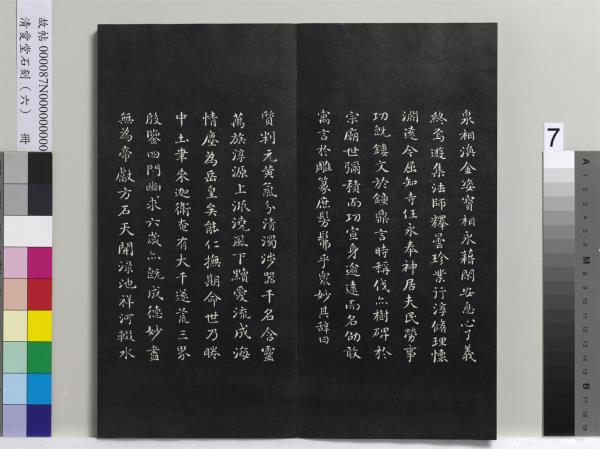 泉相渙金姿寶相永藉閑安息心了義
終焉遊集法師釋曇珍業行淳脩理懷
淵遠今屈知寺任永奉神居夫民勞事
功既鏤文於鐘鼎言時稱伐亦樹碑於
宗廟世彌積而功宣身逾遠而名劭敢
寓言於雕篆庶髣髴乎衆妙其辭曰
質判元黃氣分清濁涉器千名含靈
萬族淳源上派澆風下黷愛流成海
情塵為岳皇矣能仁撫期命世乃睠
中土聿來迦衛奄有大千遂荒三界
殷鑒四門幽求六歲亦既成德妙盡
無為帝獻方石天開淥池祥河輟水
故帖 000087N000000000
清愛堂石刻（六） 冊
7
A
M
B